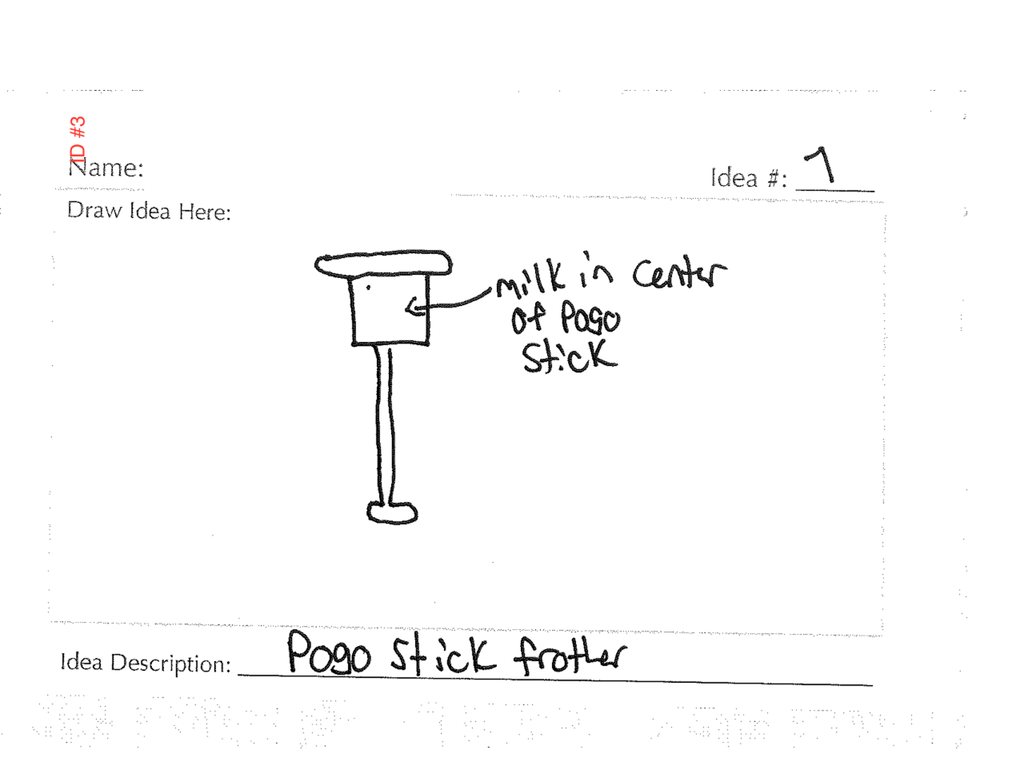 ID #3
Name:
Idea #: 1
Draw Idea Here:
milk in center
of Pogo
stick
Idea Description: Pogo stick frother